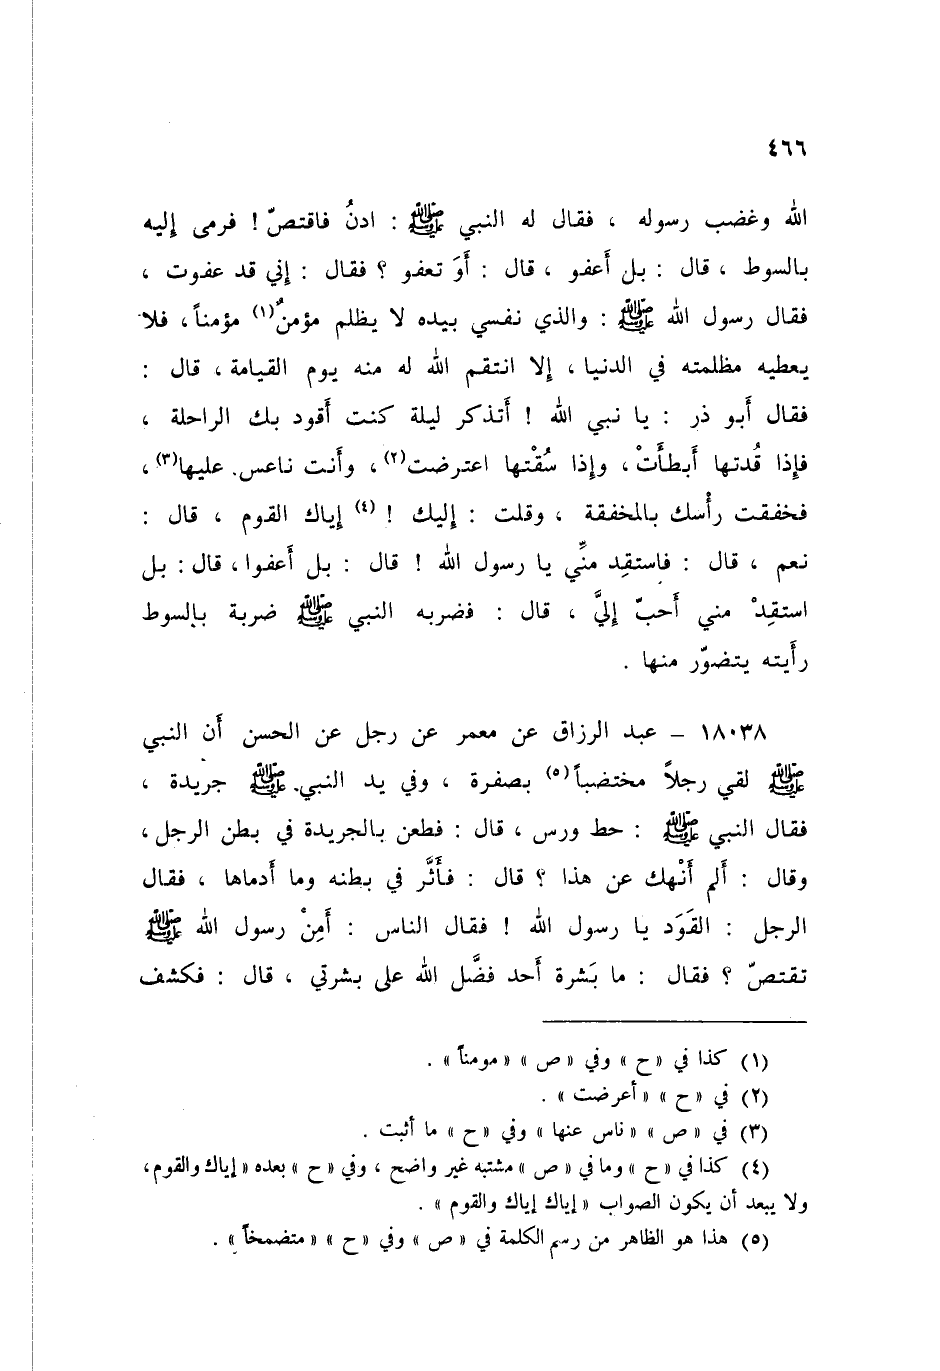 ٤٦٦
الله وغضب رسوله ، فقال له النبي ﷺ : ادنُ فاقتصّ ! فرمى إليه
بالسوط ، قال : بل أَعفو ، قال : أَوَ تعفو ؟ فقال : إني قد عفوت ،
فقال رسول الله ﷺ : والذي نفسي بيده لا يظلم مؤمنٌ(١) مؤمناً ، فلا
يعطيه مظلمته في الدنيا ، إلا انتقم الله له منه يوم القيامة ، قال :
فقال أَبو ذر : يا نبي الله ! أَتذكر ليلة كنت أَقود بك الراحلة ،
فإذا قُدتها أَبطأَتْ ، وإذا سُقْتها اعترضت(٢) ، وأَنت ناعس عليها(٣) ،
فخفقت رأْسك بالمخفقة ، وقلت : إليك ! (٤) إياك القوم ، قال :
نعم ، قال : فاستقِد منِّي يا رسول الله ! قال : بل أَعفوا ، قال : بل
استقِدْ مني أَحبّ إليَّ ، قال : فضربه النبي ﷺ ضربة بالسوط
رأَيته يتضوّر منها .
١٨٠٣٨ – عبد الرزاق عن معمر عن رجل عن الحسن أَن النبي
ﷺ لقي رجلاً مختضباً(٥) بصفرة ، وفي يد النبي ﷺ جريدة ،
فقال النبي ﷺ : حط ورس ، قال : فطعن بالجريدة في بطن الرجل ،
وقال : أَلم أَنْهك عن هذا ؟ قال : فأَثَّر في بطنه وما أَدماها ، فقال
الرجل : القَوَد يا رسول الله ! فقال الناس : أَمِنْ رسول الله ﷺ
تقتصّ ؟ فقال : ما بَشرة أَحد فضَّل الله على بشرتي ، قال : فكشف
(١) كذا في « ح » وفي « ص » « مومناً » .
(٢) في « ح » « أعرضت » .
(٣) في « ص » « ناس عنها » وفي « ح » ما أثبت .
(٤) كذا في « ح » وما في « ص » مشتبه غير واضح ، وفي « ح » بعده « إياك والقوم ،
ولا يبعد أن يكون الصواب « إياك إياك والقوم » .
(٥) هذا هو الظاهر من رسم الكلمة في « ص » وفي « ح » « متضمخاً » .